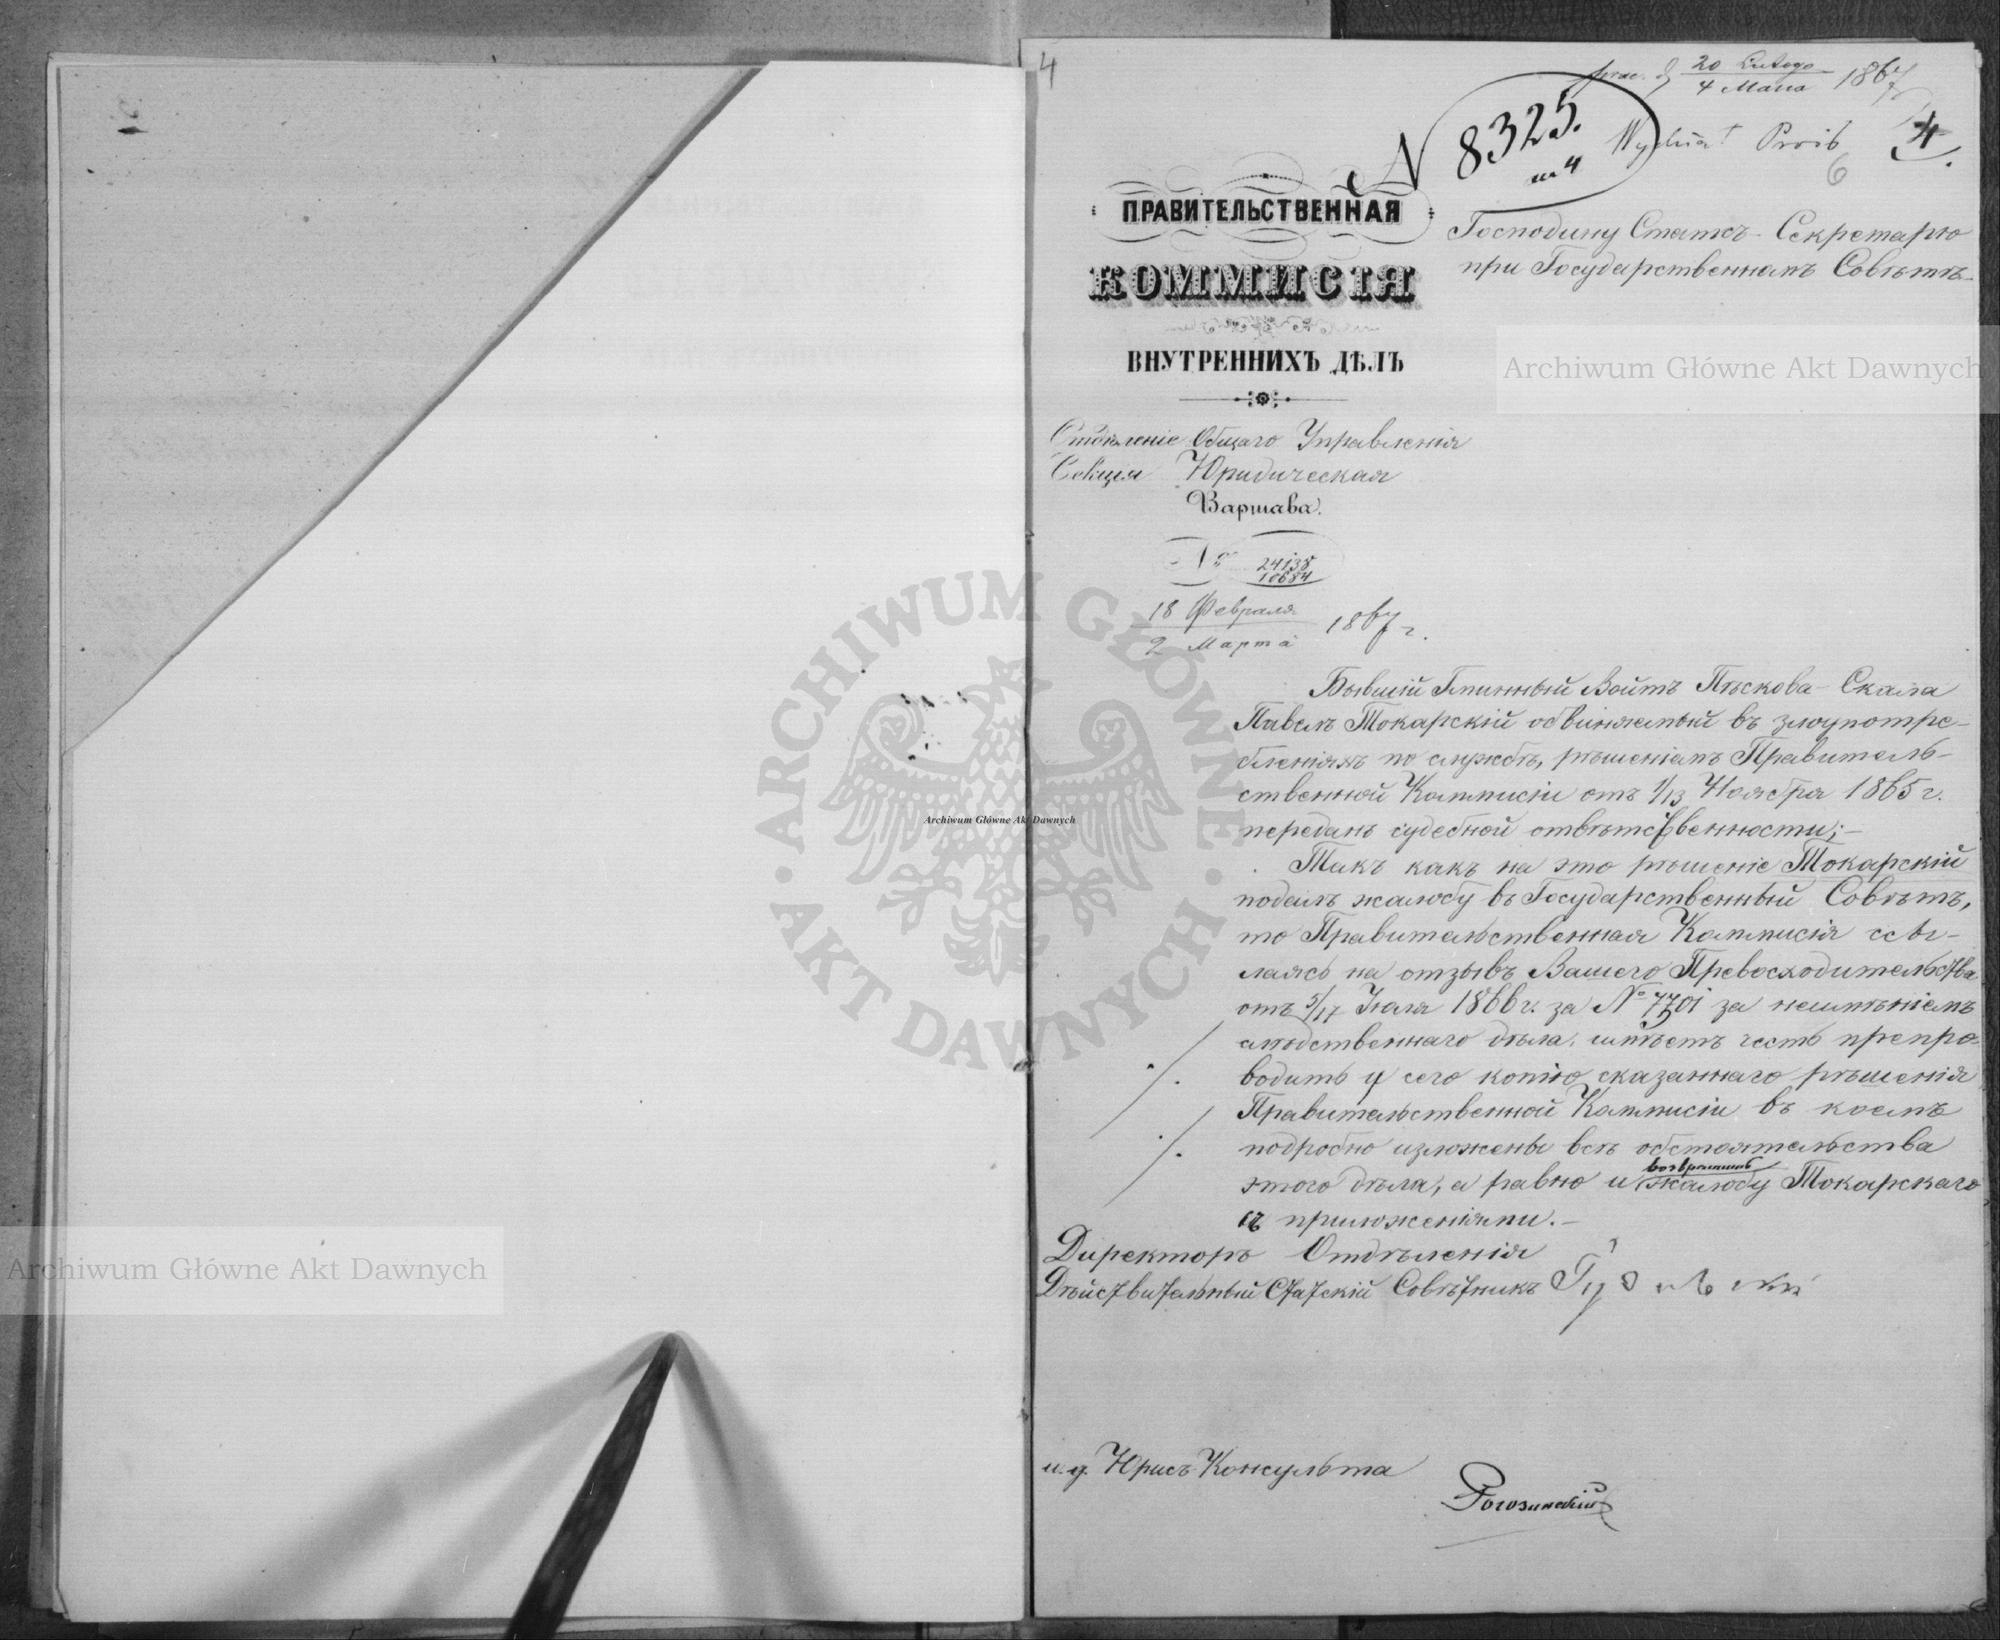 4
prae. d 20 Lutego 1867
4 Marca
N 8325.
Wydział
4
6
ПРАВИТЕЛЬСТВЕННАЯ
КОММИСІЯ
ВНУТРЕННИХЪ ДѢЛЪ
Господину Статсъ-Секретарю
при Государственномъ Совѣтѣ.
Archiwum Główne Akt Dawnych
Отдѣленіе Общаго Управленія
Секція Юридическая
Варшава.
№ 24138
10684
18 Февраля 1867 г.
2 Марта
Бывшій Гминный Войтъ Пѣскова-Скала
Павелъ Токарскій обвиняемый въ злоупотре-
бленіяхъ по службѣ, рѣшеніемъ Правитель-
ственной Коммисіи отъ 1/13 Ноября 1865 г.
переданъ судебной отвѣтственности;—
Такъ какъ на это рѣшеніе Токарскій
подалъ жалобу въ Государственный Совѣтъ,
то Правительственная Коммисія ссы-
лаясь на отзывъ Вашего Превосходительства
отъ 5/17 Іюля 1866 г. за № 7701 за неимѣніемъ
слѣдственнаго дѣла, имѣетъ честь препро-
водить у сего копію сказаннаго рѣшенія
Правительственной Коммисіи въ коемъ
подробно изложены всѣ обстоятельства
этого дѣла, а равно и возвратить жалобу Токарскаго
съ приложеніями.—
Директоръ Отдѣленія
Дѣйствительный Статскій Совѣтникъ
и.д. Юрисъ-Консульта
Рогозинскій
ARCHIWUM GŁÓWNE AKT DAWNYCH
Archiwum Główne Akt Dawnych
Archiwum Główne Akt Dawnych